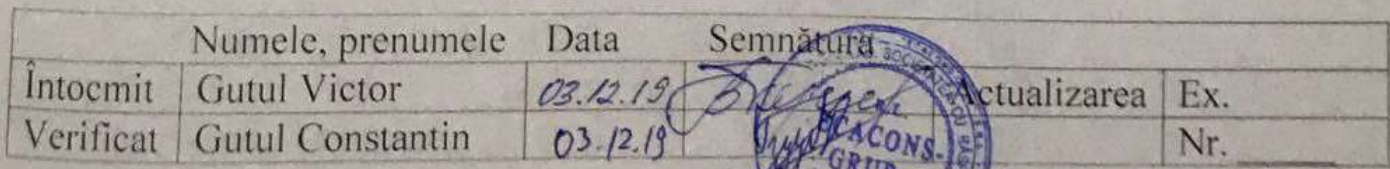 Numele, prenumele Data Semnătura
Întocmit Gutul Victor 03.12.19 Actualizarea Ex.
Verificat Gutul Constantin 03.12.19 Nr.
CACONS-
GRUP